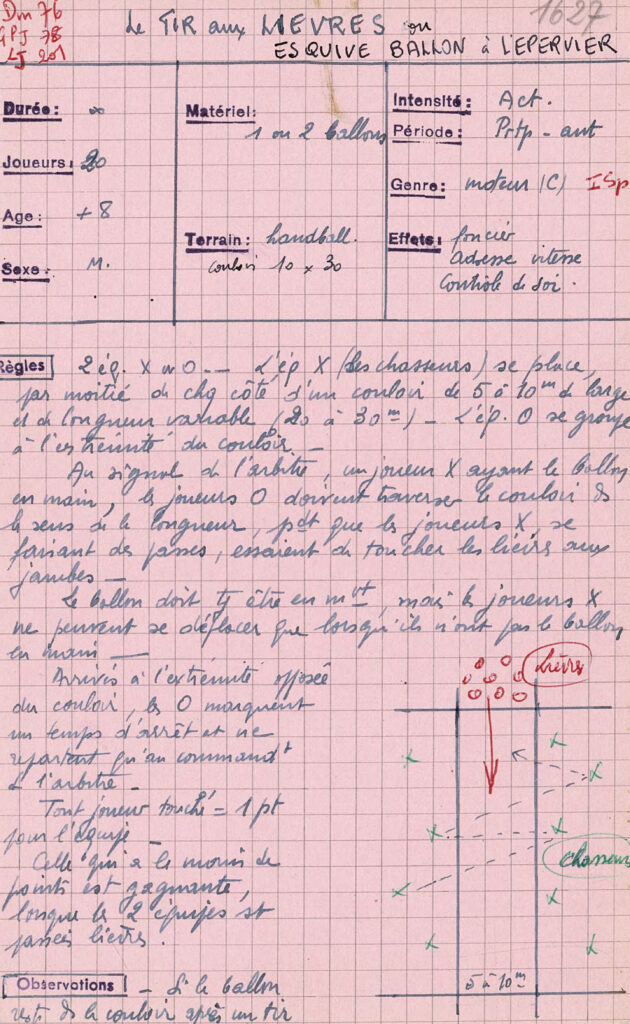 Dm 76
GPJ 78
LJ 201
1627
Le TIR aux LIEVRES ou
ESQUIVE BALLON à L'EPERVIER
Durée : ∞
Joueurs : 20
Age : + 8
Sexe : M.
Matériel :
1 ou 2 ballons
Terrain : handball.
couloir 10 x 30
Intensité : Act.
Période : Prtp - ant
Genre : moteur (C) ISp
Effets : foncier
adresse vitesse
Contrôle de soi.
Règles 2 éq. X et O __ L'éq X (les chasseurs) se place,
par moitié de chq côté d'un couloir de 5 à 10m de large
et de longueur variable (20 à 30m) _ L'éq. O se groupe
à l'extrémité du couloir _
Au signal de l'arbitre, un joueur X ayant le ballon
en main, les joueurs O doivent traverser le couloir ds
le sens de la longueur, pdt que les joueurs X, se
faisant des passes, essaient de toucher les lièvres aux
jambes _
Le ballon doit tj être en mvt, mais les joueurs X
ne peuvent se déplacer que lorsqu'ils n'ont pas le ballon
en main __
Arrivés à l'extrémité opposée
du couloir, les O marquent
un temps d'arrêt et ne
repartent qu'au commandt
de l'arbitre _
Tout joueur touché = 1 pt
pour l'équipe _
Celle qui a le moins de
points est gagnante,
lorsque les 2 équipes st
passées lièvres.
Lièvres
chasseurs
5 à 10m
Observations _ Si le ballon
reste ds le couloir après un tir